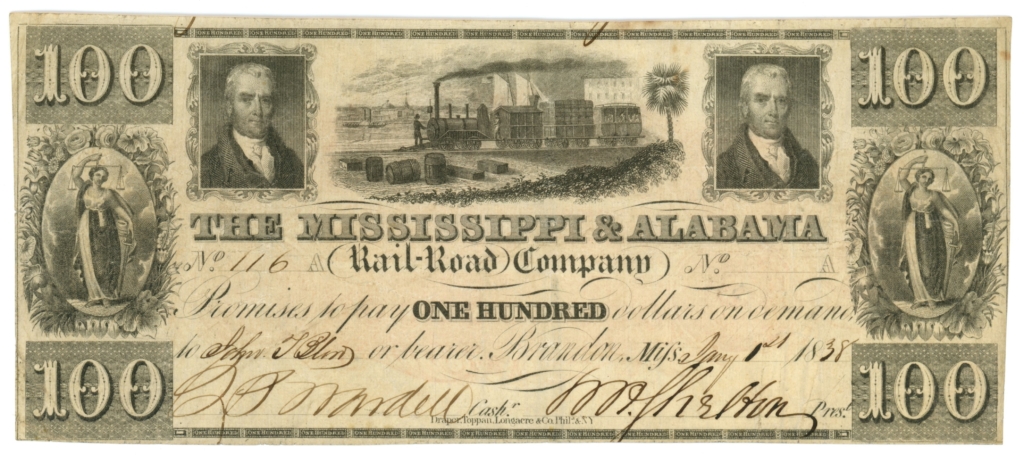 ONE HUNDRED ONE HUNDRED ONE HUNDRED ONE HUNDRED ONE HUNDRED ONE HUNDRED ONE HUNDRED ONE HUNDRED ONE HUNDRED
100 100
THE MISSISSIPPI & ALABAMA
No. 116 A (Rail-Road Company) No. A
Promises to pay ONE HUNDRED dollars on demand,
to John T or bearer. Brandon, Miss. Jany 1st 1838
100 Cash.r Wm. Shelton Pres.t 100
Draper, Toppan, Longacre & Co. Phila. & N.Y.
ONE HUNDRED ONE HUNDRED ONE HUNDRED ONE HUNDRED ONE HUNDRED ONE HUNDRED ONE HUNDRED ONE HUNDRED ONE HUNDRED